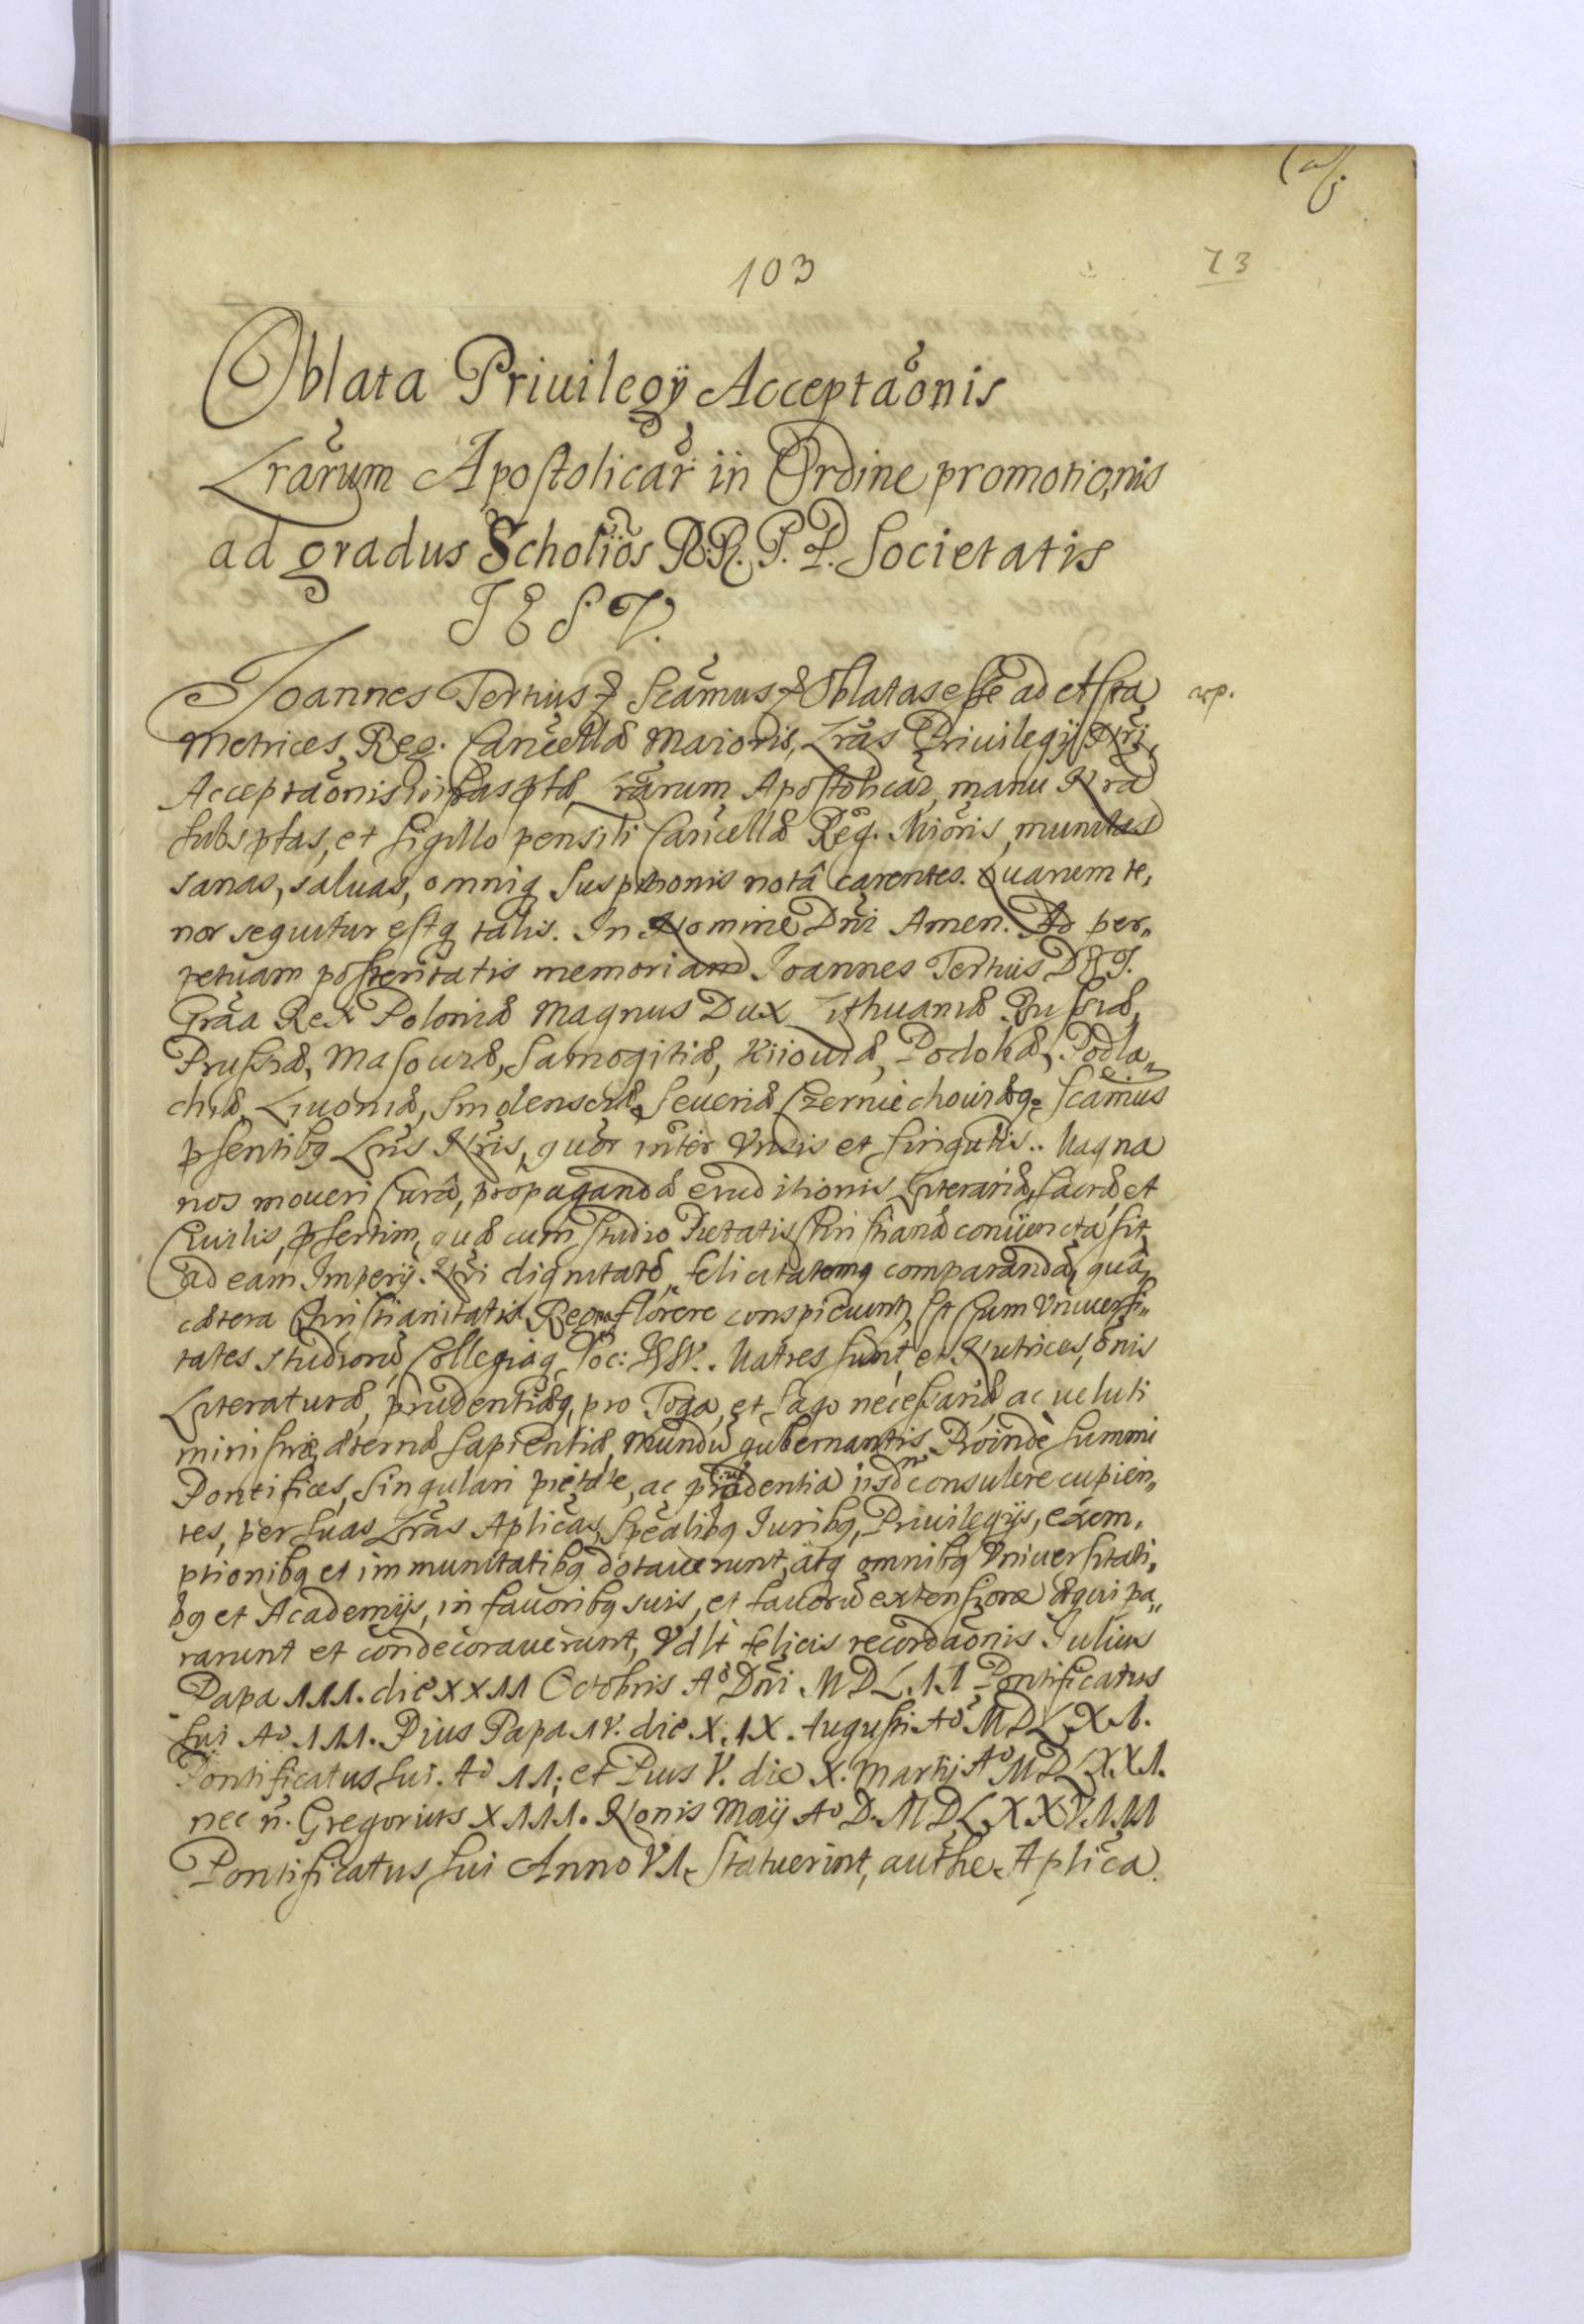 103
73
Oblata Priuilegij Acceptãonis
Lrãrum Apostolicar̃ in Ordine promotionis
ad gradus Scholiõs RR. P. P. Societatis
JESV.
Joannes Tertius Scãmus Oblatas esse ad Acta rp.
Metrices Reg. Cancellæ Maioris, Lrãs Priuilegij Nri,
Acceptãonis Lrãrum Apostolicar, manu Nrã
subsptas, et sigillo pensili Cancellæ Reg. Miõris, munitas
sanas, saluas, omniq suspitionis notâ carentes. Quarum te,
nor sequitur estq talis. In Nomine Dñi Amen. Ad per„
petuam posteritatis memoriam Joannes Tertius D. G.
Grãa Rex Poloniæ Magnus Dux Lithuaniæ Russiæ,
Prussiæ, Masouiæ, Samogitiæ, Kiiouiæ, Podoliæ, Podla„
chiæ, Liuoniæ, Smolensciæ, Seueriæ Czerniechouiæq. Scãmus
pſentibq Lris Nris, quor inter Vnsis et singulis. Magna
nos moueri curâ, propagandæ eruditionis Literariæ, sacræ et
Ciuilis, pſertim, quæ cum studio Pietatis Christianæ coniuncta sit,
ad eam Imperij Nri dignitatẽ, felicitatemq comparandã, quâ,
cætera Christianitatis Regna florere conspiciunt, Et Cum Vniuersi„
tates studiorũ Collegiaq Soc: IESV. Matres sunt, et Nutrices, õnis
Literaturæ, prudentiæq, pro Toga, et Sago necessariæ, ac veluti
ministræ æternæ sapientiæ, Mundũ gubernantis. Proindè summi
Pontifices, singulari pietate, ac prudentia iisdm consulere cupien„
tes, per suas Lrãs Aplicãs, Speãlibq Juribq, Priuilegijs, exem,
ptionibq et immunitatibq dotauerunt, atq omnibq Vniuersitati,
bq et Academijs, in fauoribq suis, et fauorũ extensione æquipa„
rarunt et condecorauerunt, Vdlt felicis recordãonis Julius
Papa III. die XXII Octobris Aº Dñi MDLII Pontificatus
sui Aº III. Pius Papa IV. die X.IX. Augusti Aº MDLXI.
Pontificatus sui Aº II; et Pius V. die X. Martij Aº MDLXXI.
nec ñ. Gregorius XIII. Nonis Maij Aº D. MDLXXVIII
Pontificatus sui Anno VI. Statuerint, authe Aplica.